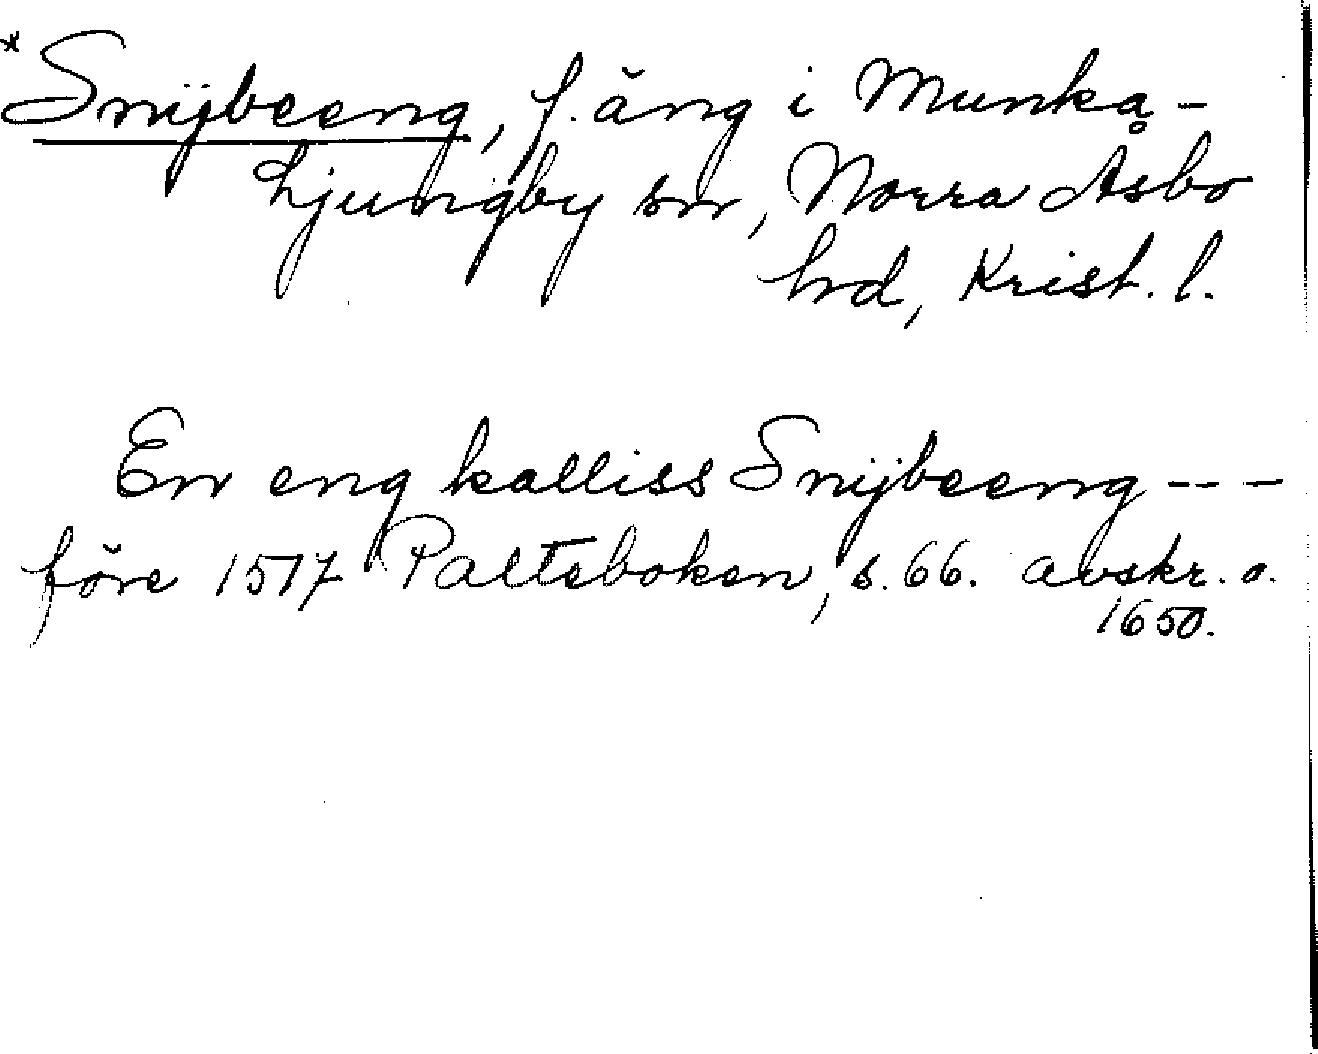 * Snÿbeeng, f. äng i Munka-
Ljungby sn, Norra Åsbo
hd, Krist. l.
En eng kalliss Snÿbeeng - - -
före 1517 Palteboken, s. 66. avskr. o.
1650.